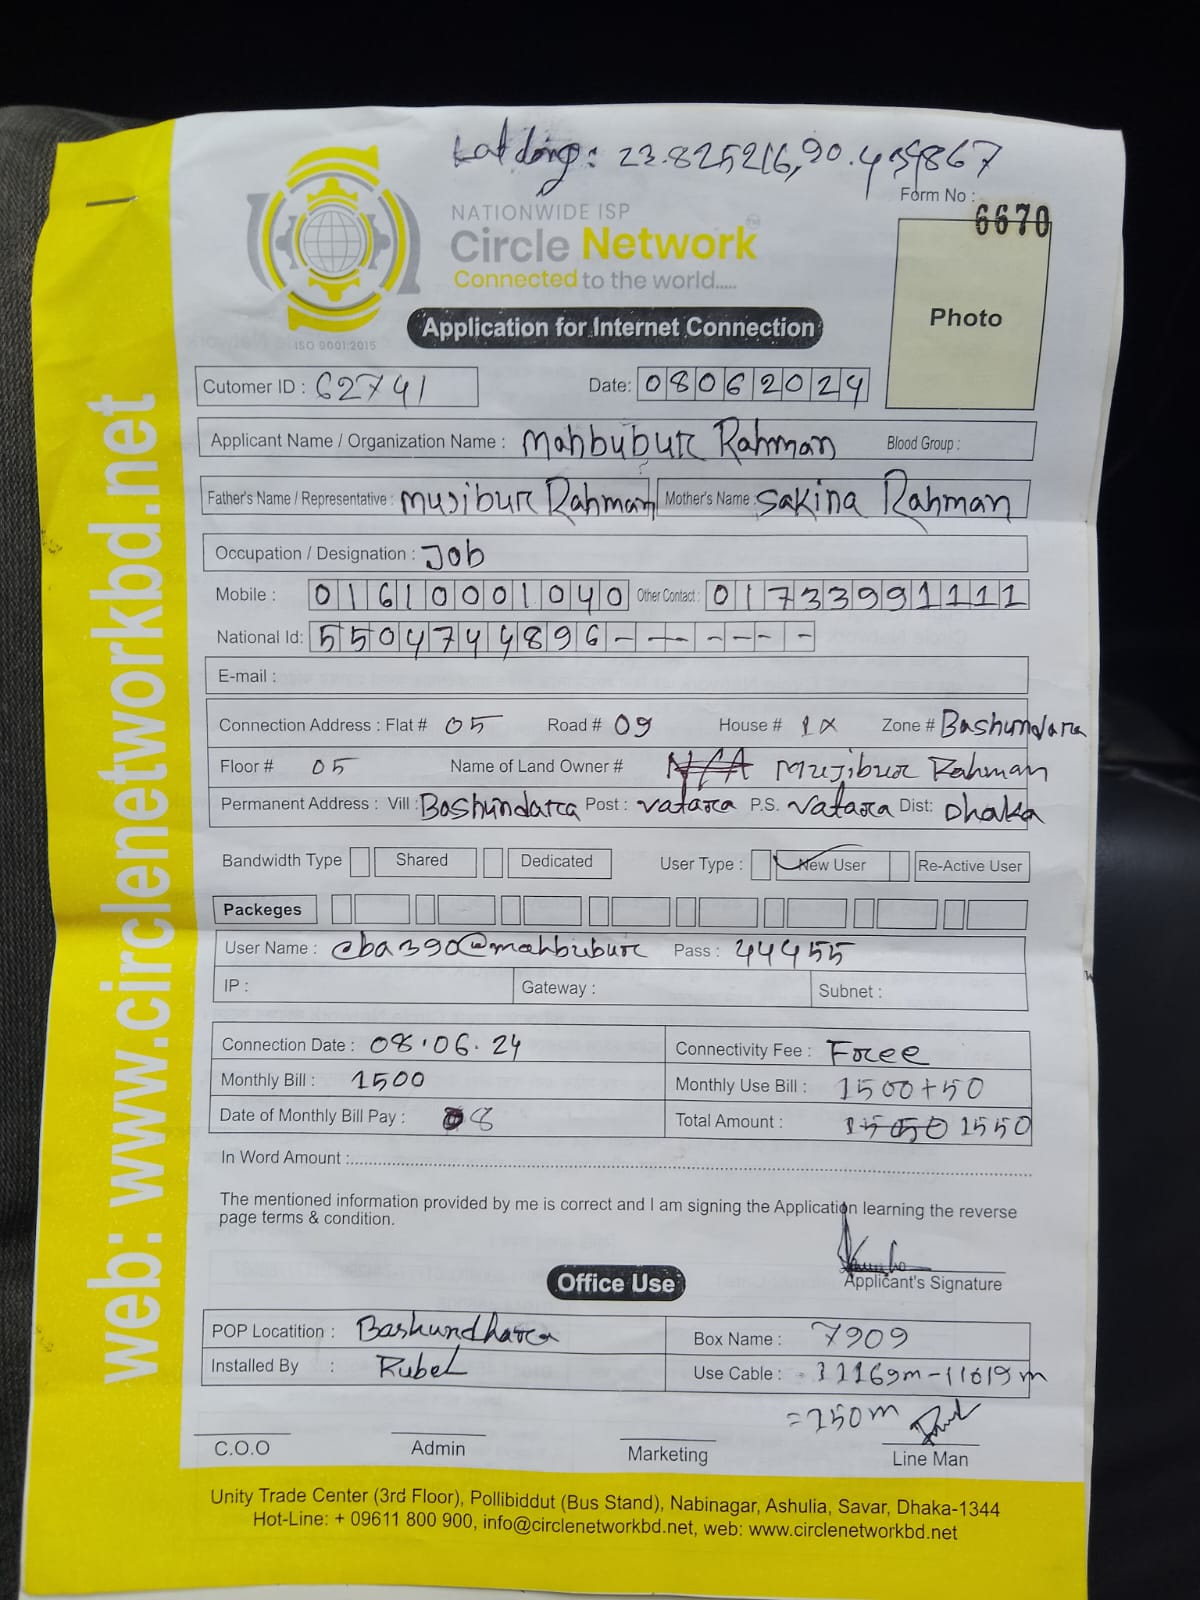 Lat long: 23.825216, 90.439867
Form No :
6670
NATIONWIDE ISP
Circle Network
Connected to the world.....
ISO 9001:2015
Application for Internet Connection
Photo
Cutomer ID : 62741 Date: 08062024
Applicant Name / Organization Name : Mahbubur Rahman Blood Group :
Father's Name / Representative : Mujibur Rahman Mother's Name : Sakina Rahman
Occupation / Designation : Job
Mobile : 01610001040 Other Contact : 01733991111
National Id: 5504744896-------
E-mail :
Connection Address : Flat # 05 Road # 09 House # Zone # Bashundara
Floor # 05 Name of Land Owner # N/A Mujibur Rahman
Permanent Address : Vill : Bashundara Post : Vatara P.S. Vatara Dist: Dhaka
Bandwidth Type Shared Dedicated User Type : New User Re-Active User
Packeges
User Name : cba390@mahbubur Pass : 44455
IP : Gateway : Subnet :
Connection Date : 08.06.24 Connectivity Fee : Free
Monthly Bill : 1500 Monthly Use Bill : 1500+50
Date of Monthly Bill Pay : 8 Total Amount : 1550
In Word Amount :
The mentioned information provided by me is correct and I am signing the Application learning the reverse
page terms & condition.
Applicant's Signature
Office Use
POP Locatition : Bashundhara Box Name : 7909
Installed By : Rubel Use Cable :
C.O.O Admin Marketing Line Man
Unity Trade Center (3rd Floor), Pollibiddut (Bus Stand), Nabinagar, Ashulia, Savar, Dhaka-1344
Hot-Line: + 09611 800 900, info@circlenetworkbd.net, web: www.circlenetworkbd.net
web: www.circlenetworkbd.net